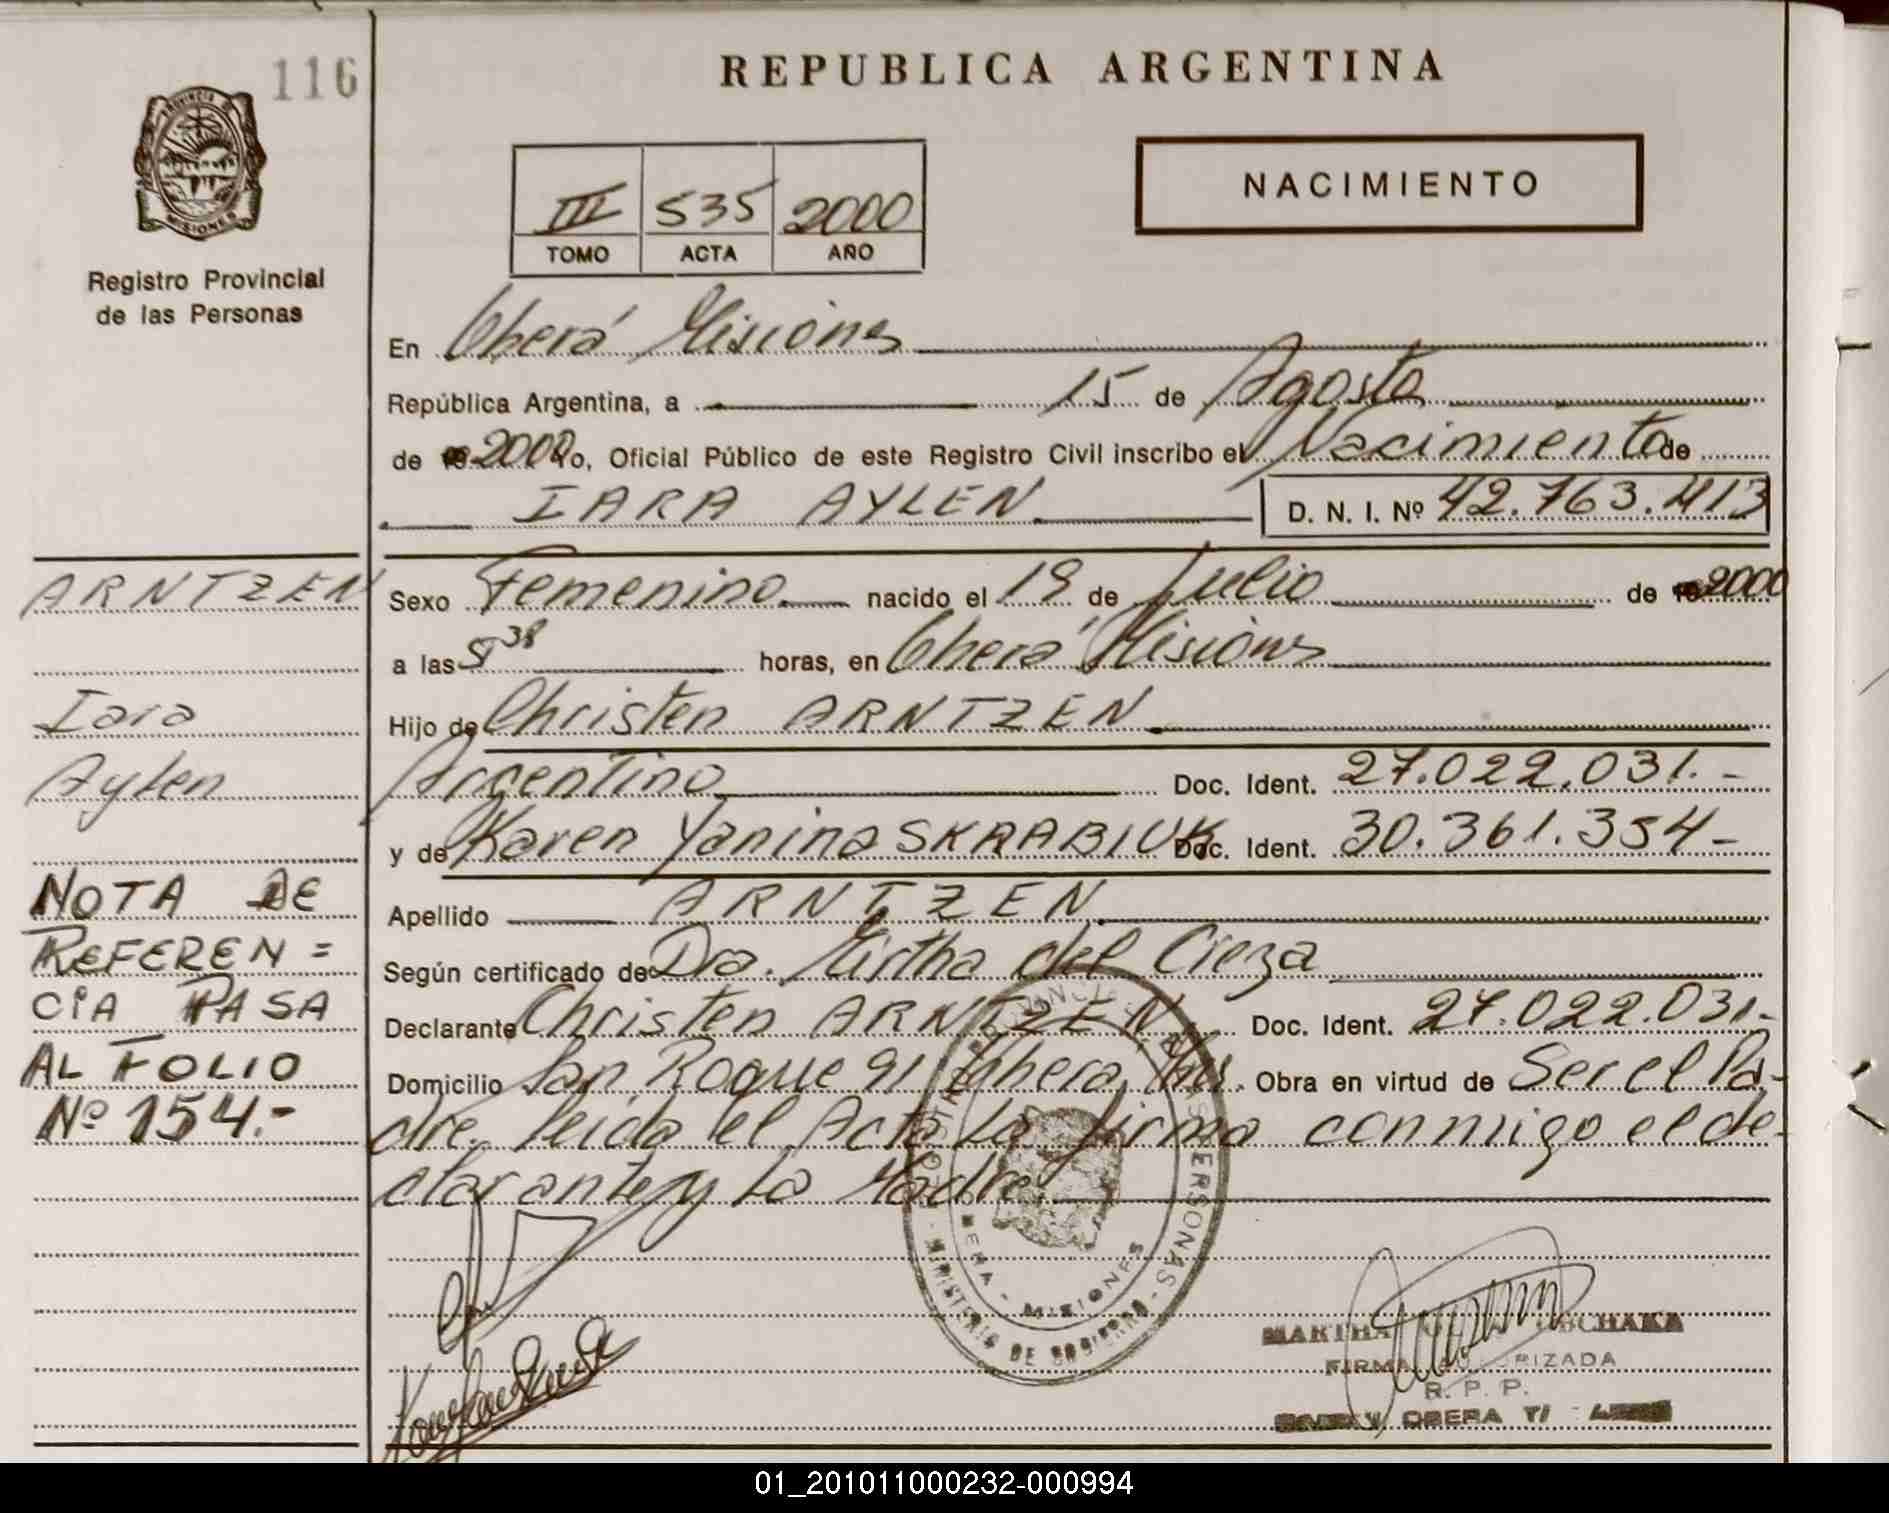 116
REPUBLICA ARGENTINA
III 535 2000
TOMO ACTA AÑO
NACIMIENTO
PROVINCIA DE
MISIONES
Registro Provincial
de las Personas
En Oberá Misiones
República Argentina, a 15 de Agosto
de 2000 Yo, Oficial Público de este Registro Civil inscribo el Nacimiento de
IARA AYLEN D. N. I. Nº 42.763.413
ARNTZEN
Iara
Aylen
NOTA DE
REFEREN =
CIA PASA
AL FOLIO
Nº 154.-
Sexo Femenino nacido el 19 de Julio de 2000
a las 5 38 horas, en Oberá Misiones
Hijo de Christen ARNTZEN
Argentino Doc. Ident. 27.022.031.-
y de Karen Yanina SKRABIUK Doc. Ident. 30.361.354-
Apellido ARNTZEN
Según certificado de Dra. Mirtha del Cieza
Declarante Christen ARNTZEN Doc. Ident. 27.022.031.-
Domicilio San Roque 91 Obera, Mis. Obra en virtud de Ser el Pa-
dre. leida el Acta La firma conmigo el de-
clarante y La Madre.
PERSONAS
OBERA - MISIONES
MINISTERIO DE GOBIERNO
MARTHA
FIRMA AUTORIZADA
R. P. P.
OBERA
01_201011000232-000994